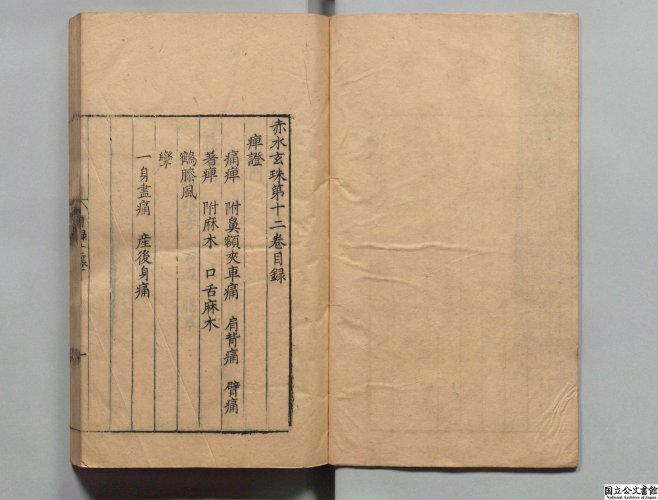 赤水玄珠第十二卷目録
痺證
痛痺 附鼻額夾車痛 肩背痛 臂痛
著痺 附麻木 口舌麻木
鶴膝風
攣
一身盡痛 産後身痛
国立公文書館
National Archives of Japan